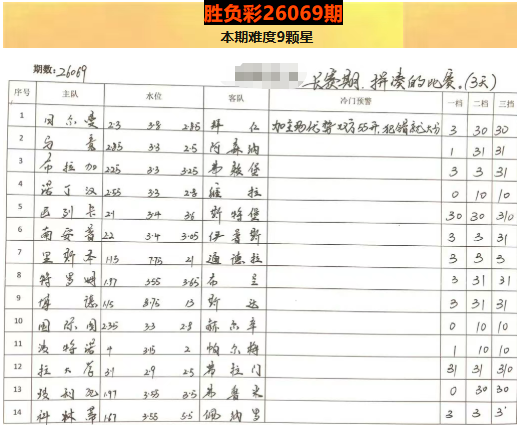 胜负彩26069期
本期难度9颗星
期数：26069 长赛期.拼凑的比赛.(3天)
序号 主队 水位 客队 冷门预警 一档 二档 三档
1 2.3 3.8 2.85 拜仁 3 30 30
2 2.85 3.3 2.5 阿森纳 1 31 31
3 布拉加 2.25 3.3 3.25 弗赖堡 3 3 31
4 诺丁汉 2.55 3.3 2.8 维拉 0 10 10
5 2.1 3.4 3.6 斯特堡 30 30 310
6 南安普 2.2 3.4 3.05 伊普斯 3 3 31
7 里斯本 1.13 7.75 21 通德拉 3 3 3
8 特罗姆 1.97 3.55 3.65 布兰 3 31 31
9 博德 1.15 8.75 13 斯达 3 31 31
10 国际图 2.35 3.3 2.8 赫尔辛 0 10 10
11 波特诺 4 3.15 2 帕尔梅 1 10 10
12 3.1 2.9 2.5 弗拉门 31 31 310
13 玻利瓦 1.97 3.55 3.5 弗鲁米 0 30 30
14 科林蒂 1.67 3.55 5.5 佩纳罗 3 3 3